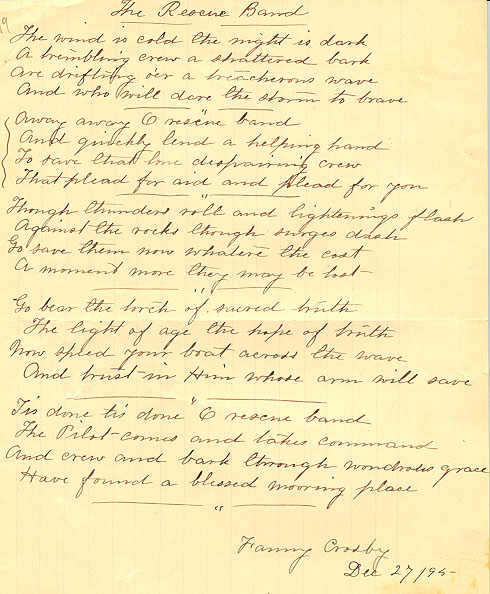 The Rescue Band
The wind is cold the night is dark
A trembling crew a shattered bark
Are drifting o'er a treacherous wave
And who will dare the storm to brave
"
Away away O rescue band
And quickly lend a helping hand
To save that lone despairing crew
That plead for aid and plead for you
"
Though thunders roll and lightenings flash
Against the rocks though surges dash
Go save them now whate'er the cost
A moment more they may be lost
"
Go bear the torch of sacred truth
The light of age the hope of truth
Now speed your boat across the wave
And trust in Him whose arm will save
"
Tis done tis done O rescue band
The Pilot comes and takes command
And crew and bark through wondrous grace
Have found a blessed mooring place
"
Fanny Crosby
Dec 27/95-